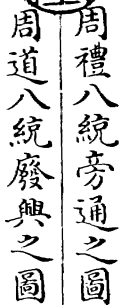 周禮八統旁通之圖
周道八統廢興之圖